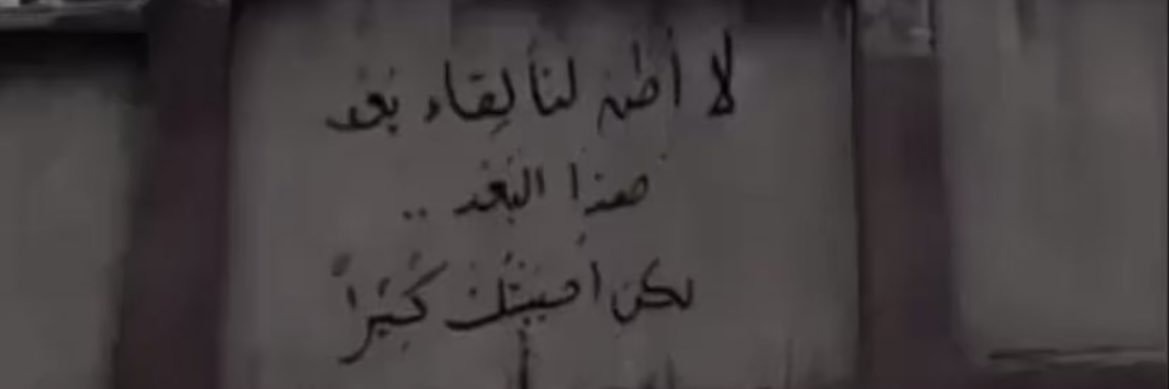 لا أظن لنا لِقاء بَعْد
هذا البُعْد ..
لكن أحببتُك كَثيراً